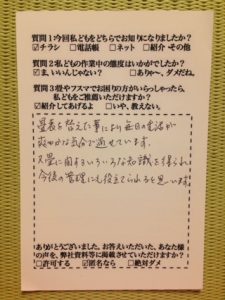 質問1今回私どもをどちらでお知りになりましたか?
☑チラシ □電話帳 □ネット □紹介 その他
質問2私どもの作業中の態度はいかがでしたか?
☑ま、いいんじゃない? □ありゃ〜、ダメだね。
質問3畳やフスマでお困りの方がいらっしゃったら、
私どもをご推薦いただけますか?
☑紹介してあげるよ □いや、教えない。
畳表を替えた事により毎日の生活が
爽やかな気分で過せています。
又畳に関するいろいろな知識も得られ
今後の管理にも役立てられると思います。
ありがとうございました。お答えいただいた、あなた様
の声を、弊社資料等に掲載させていただけますか?
□許可する ☑匿名なら □絶対ダメ